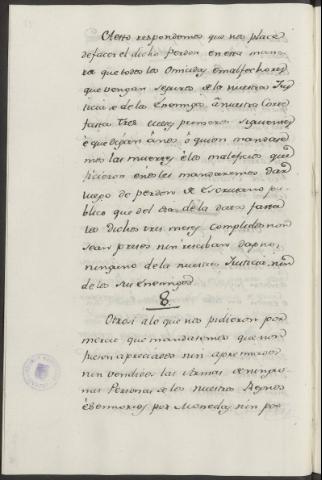 A esto respondemos que nos place
de facer el dicho Perdon en esta mane
ra que todos los Omicidas, e malfechores
que vengan seguros de la nuestra Jus
ticia e de los Enemigos à nuestra Corte
fasta tres meses primeros siguientes
è que digan à nos ò quien mandare
mos las muertes è los maleficios que
ficieron è nos les mandaremos dar
luego de perdon è Escrivano pu
blico que del dia de la data fasta
los dichos tres meses complidos non
sean presos nin reciban dapno
ninguno de la nuestra Justicia nin
de los sus Enemigos
8.
Otrosi à lo que nos pidieron por
merced que mandasemos que non
fuesen apreciados nin apremiados
nin vendidas las Armas de ningu
nas Personas de los nuestros Regnos
è Señorios por Moneda, nin por